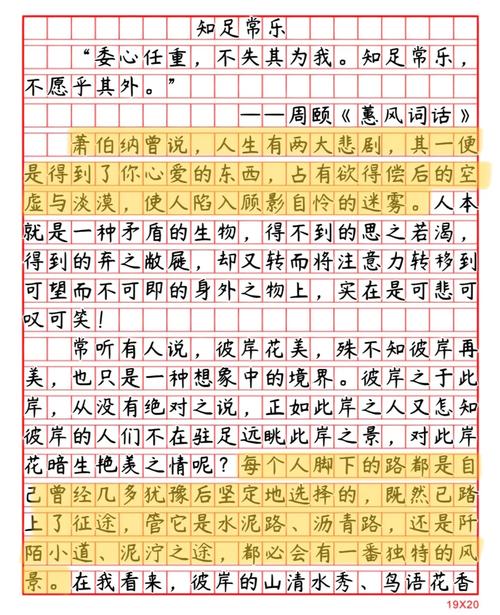 知足常乐
“委心任重，不失其为我。知足常乐，
不愿乎其外。”
——周颐《蕙风词话》
萧伯纳曾说，人生有两大悲剧，其一便
是得到了你心爱的东西，占有欲得偿后的空
虚与淡漠，使人陷入顾影自怜的迷雾。人本
就是一种矛盾的生物，得不到的思之若渴，
得到的弃之敝屣，却又转而将注意力转移到
可望而不可即的身外之物上，实在是可悲可
叹可笑！
常听有人说，彼岸花美，殊不知彼岸再
美，也只是一种想象中的境界。彼岸之于此
岸，从没有绝对之说，正如此岸之人又怎知
彼岸的人们不在驻足远眺此岸之景，对此岸
花暗生艳羡之情呢？每个人脚下的路都是自
己曾经几多犹豫后坚定地选择的，既然已踏
上了征途，管它是水泥路、沥青路，还是阡
陌小道、泥泞之途，都必会有一番独特的风
景。在我看来，彼岸的山清水秀、鸟语花香
19X20